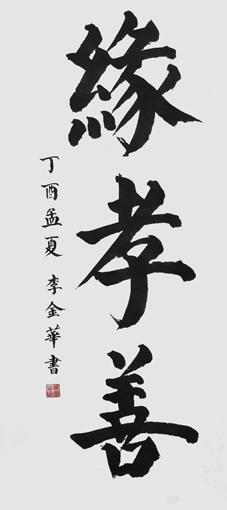 緣孝善
丁酉孟夏 李金華書